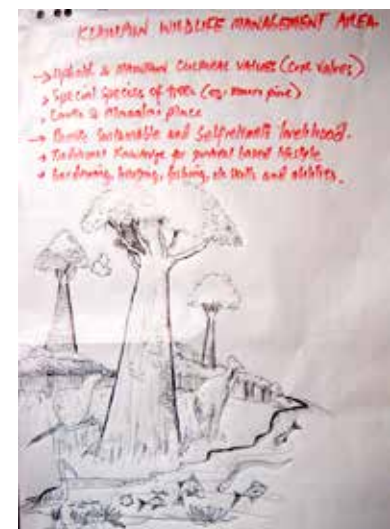 WILDLIFE MANAGEMENT AREA
→ Uphold & MAINTAIN CULTURAL VALUES (core values)
→ Special species of trees (eg.
place
→ Promote sustainable and selfreliant livelihood.
→ Traditional Knowledge for survival based lifestyle
→ Gardening, hunting, fishing, etc skills and abilities.